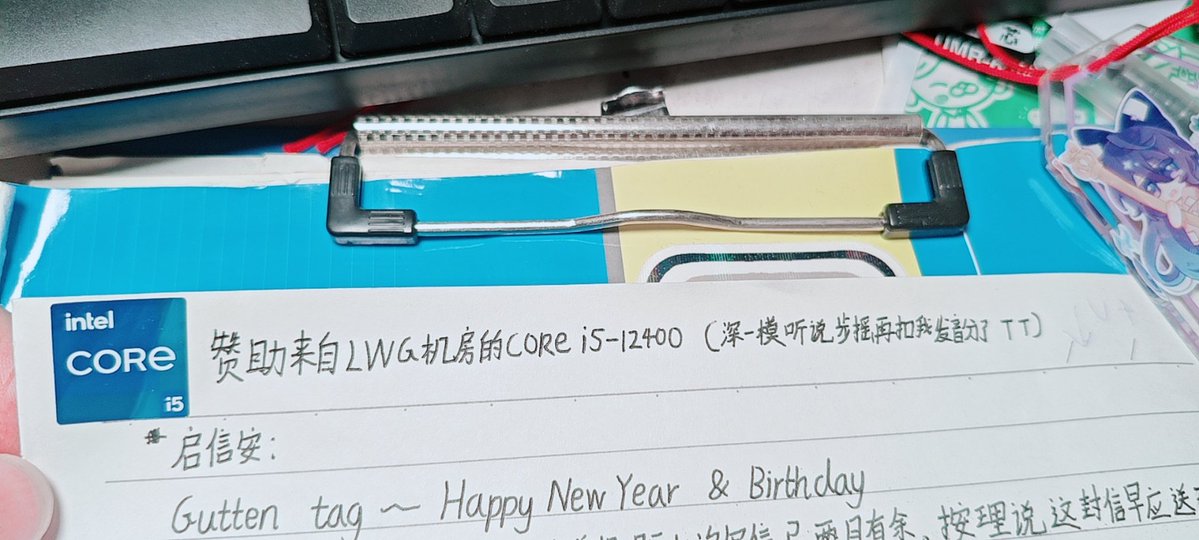 芯
UMR-
intel
CORE
i5
赞助来自LWG机房的CORE i5-12400（深一模听说步摇再扣我发音分了 TT）
*启信安：
Gutten tag ～ Happy New Year & Birthday
欠信已两月有余、按理说这封信早应送